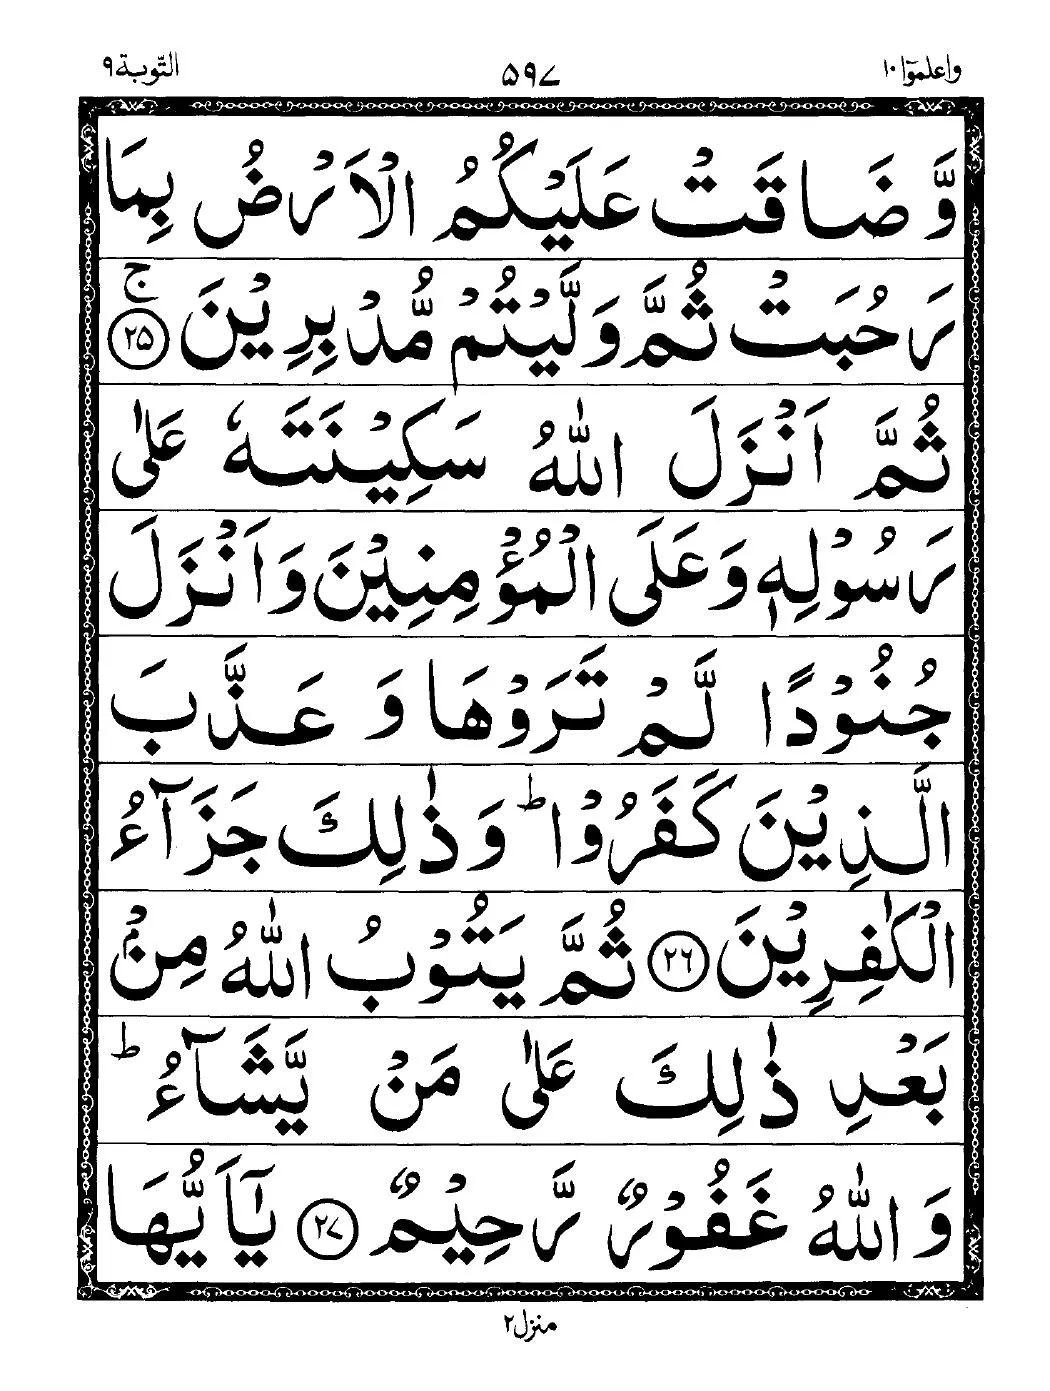 واعلموٓا ١٠ ۵۹۷ التّوبة ۹
وَّضَاقَتْ عَلَيْكُمُ الْاَرْضُ بِمَا
رَحُبَتْ ثُمَّ وَلَّيْتُمْ مُّدْبِرِيْنَ ۚ ﴿۲۵﴾
ثُمَّ اَنْزَلَ اللّٰهُ سَكِيْنَتَهٗ عَلٰى
رَسُوْلِهٖ وَعَلَى الْمُؤْمِنِيْنَ وَاَنْزَلَ
جُنُوْدًا لَّمْ تَرَوْهَا وَ عَذَّبَ
الَّذِيْنَ كَفَرُوْا ؕ وَذٰلِكَ جَزَآءُ
الْكٰفِرِيْنَ ﴿۲۶﴾ ثُمَّ يَتُوْبُ اللّٰهُ مِنْۢ
بَعْدِ ذٰلِكَ عَلٰى مَنْ يَّشَآءُ ؕ
وَاللّٰهُ غَفُوْرٌ رَّحِيْمٌ ﴿۲۷﴾ يٰٓاَيُّهَا
منزل ۲